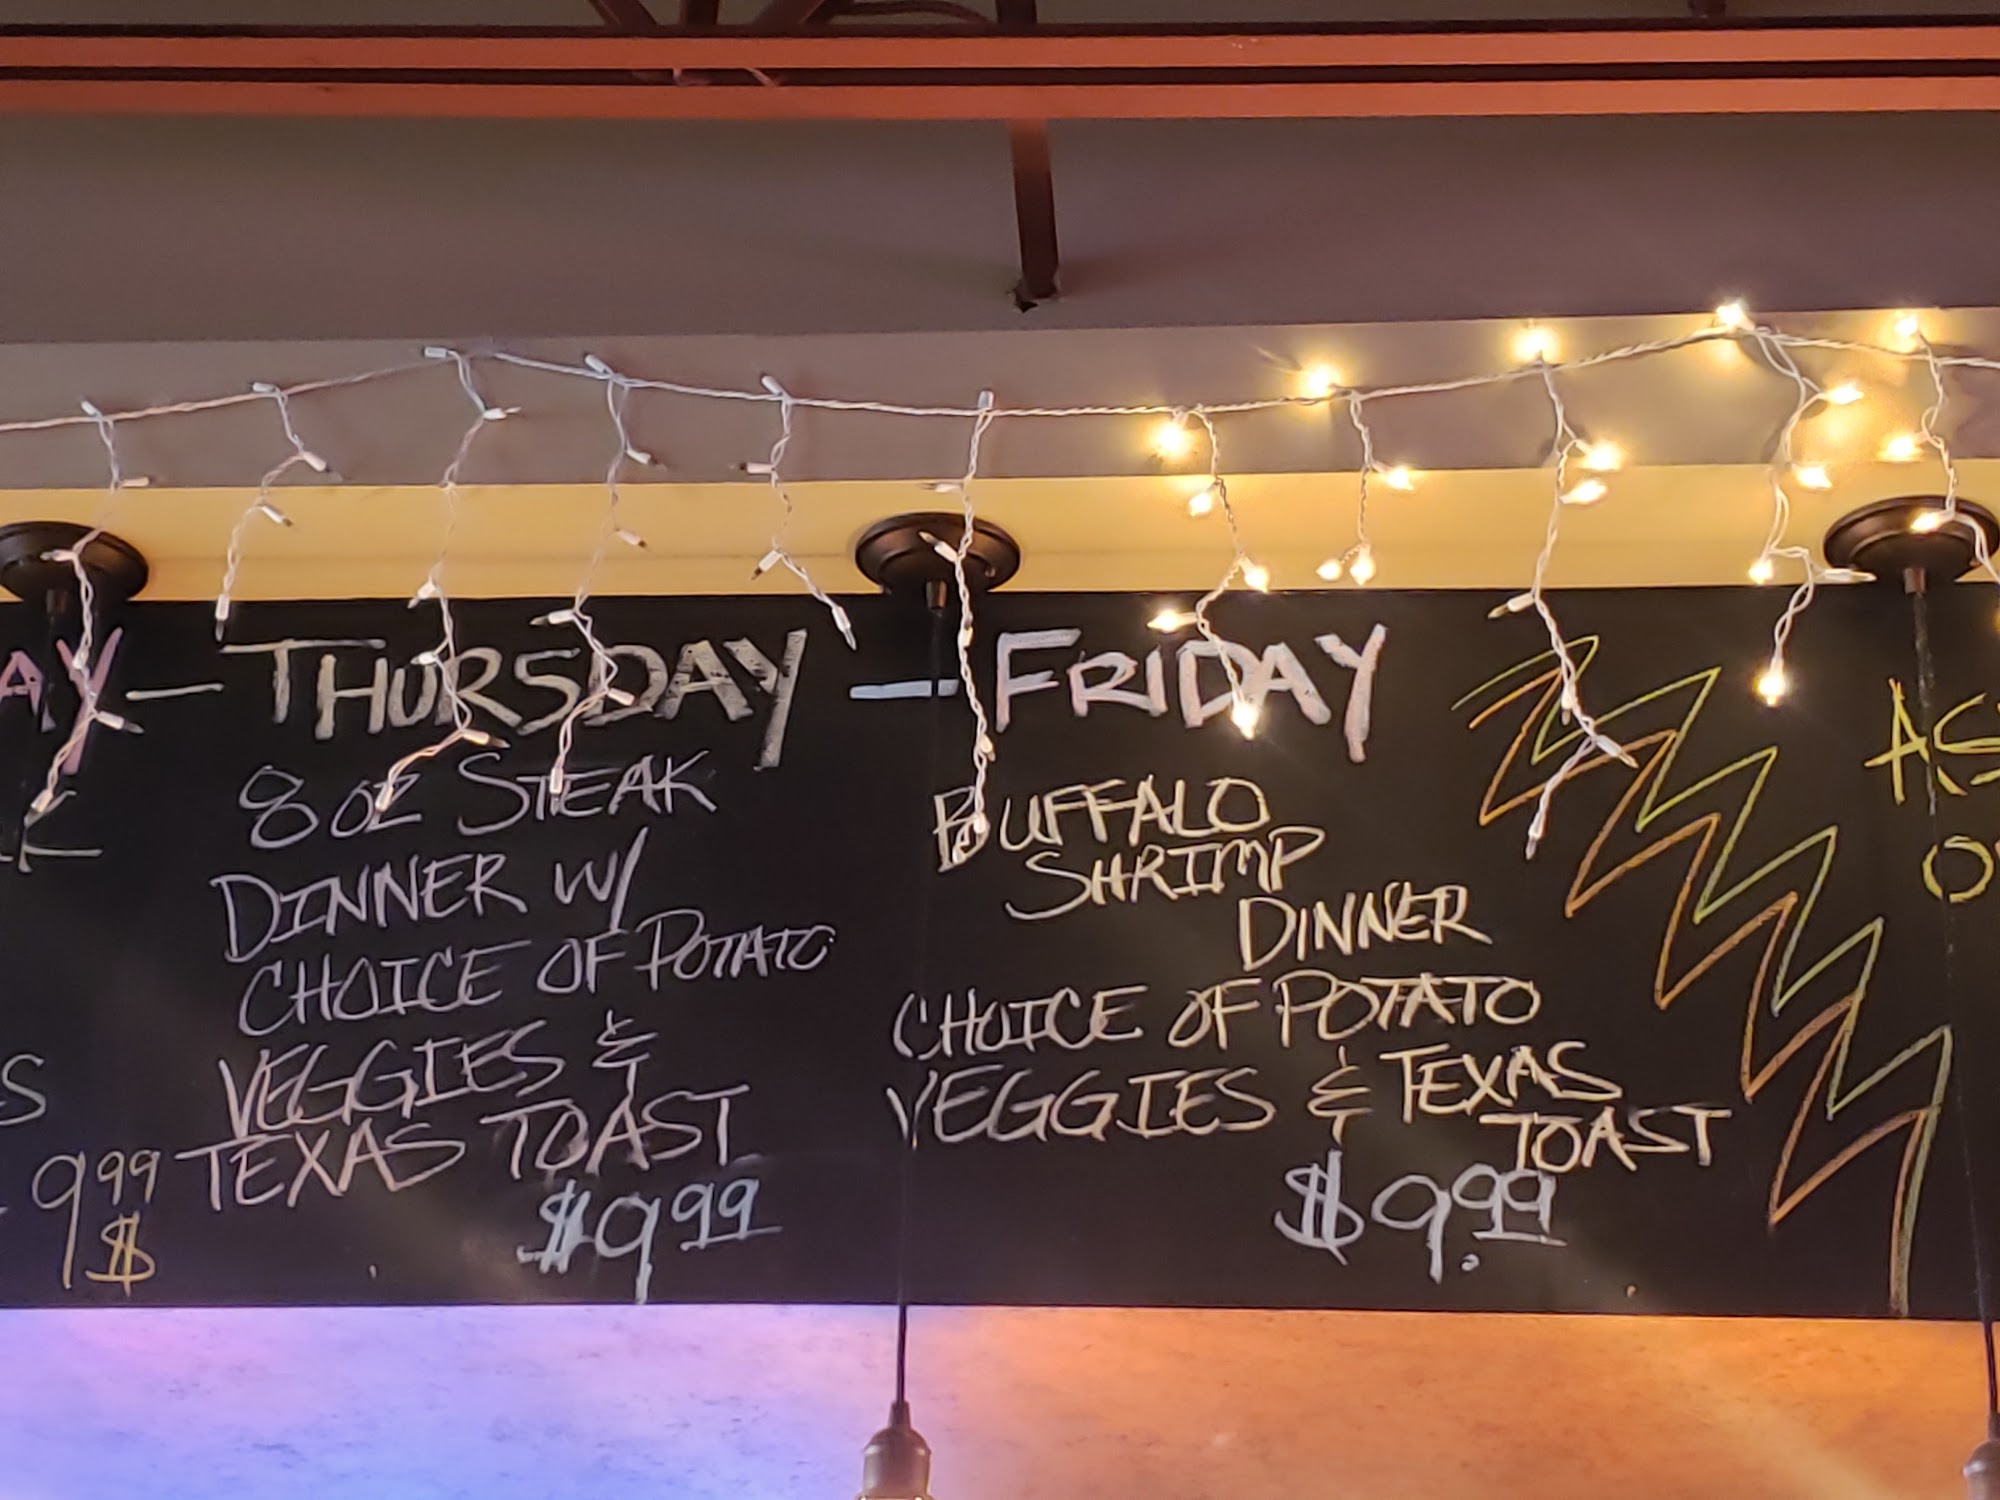 AY — THURSDAY — FRIDAY
8 OZ STEAK
DINNER W/
CHOICE OF POTATO
VEGGIES &
TEXAS TOAST
$9.99
BUFFALO
SHRIMP
DINNER
CHOICE OF POTATO
VEGGIES & TEXAS
TOAST
$9.99
S
9.99
$
AS